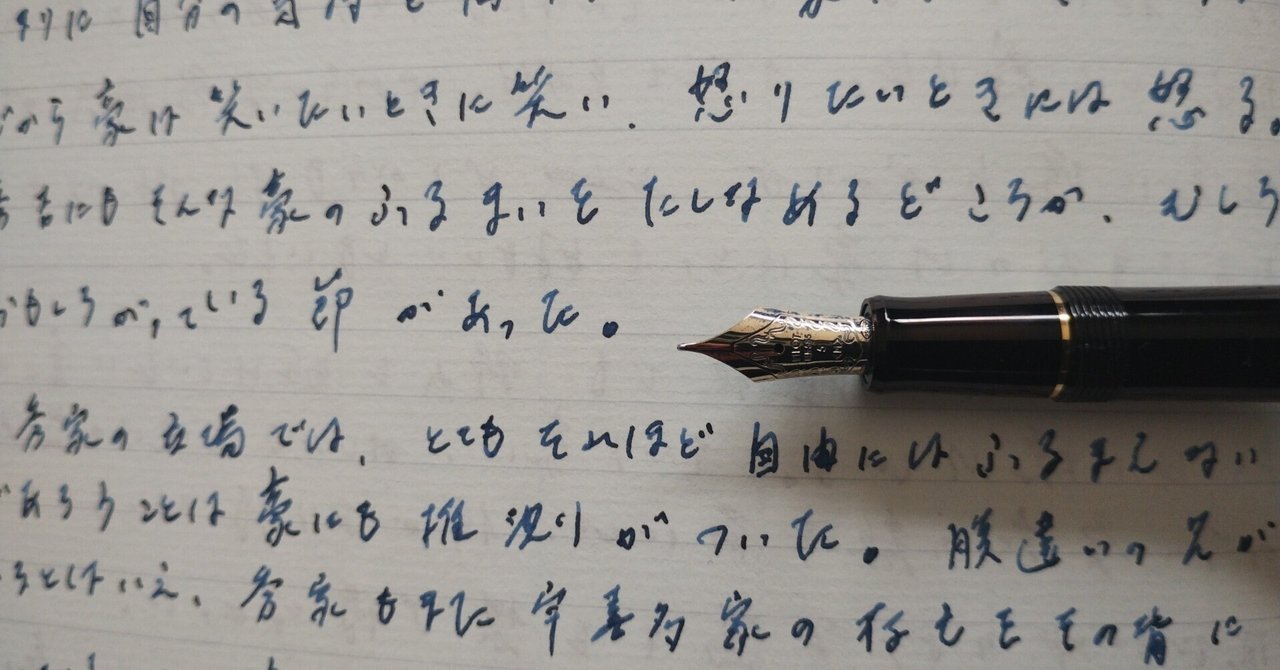 りに自分の
から豪は笑いたいときに笑い、怒りたいときには怒る。
吉にもそんな豪のふるまいをたしなめるどころか、むしろ
おもしろがっている節があった。
秀家の立場では、とてもそれほど自由にはふるまえない
であろうことは豪にも推測がついた。腹違いの兄が
るとはいえ、秀家もまた宇喜多家の存亡をその背に